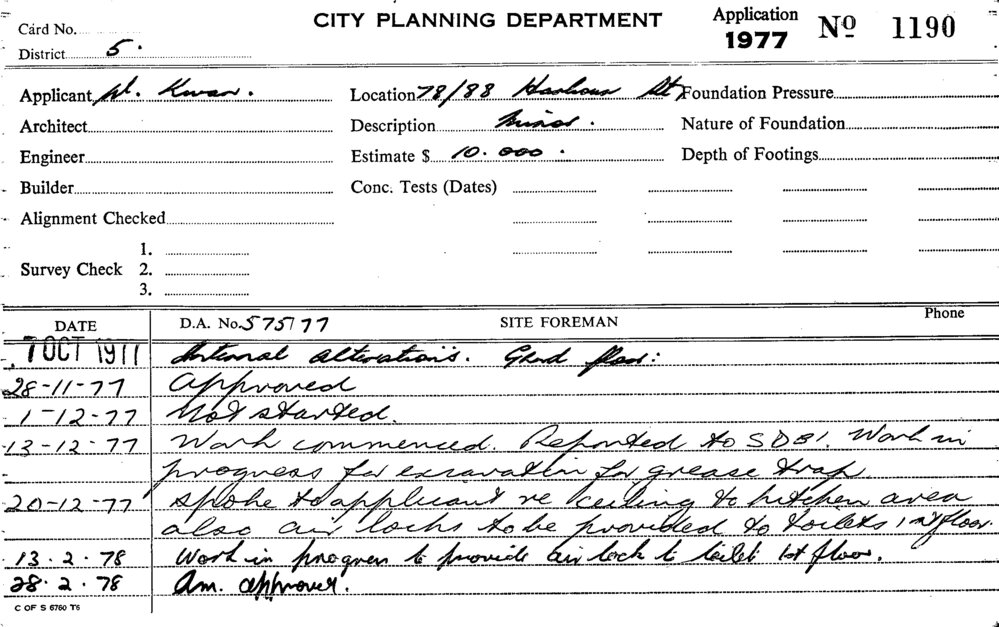 CITY PLANNING DEPARTMENT
Application 1977 No 1190
Card No.
District 5.
Applicant W. Kwan. Location 78/88 Harbour St. Foundation Pressure
Architect Description Minor. Nature of Foundation
Engineer Estimate $ 10.000. Depth of Footings
Builder Conc. Tests (Dates)
Alignment Checked
Survey Check 1.
2.
3.
DATE D.A. No. 575/77 SITE FOREMAN Phone
7 OCT 1977 Internal alterations. Grnd floor:
28-11-77 Approved
1-12-77 Not started.
13-12-77 Work commenced. Reported to SDBI. Work in
progress for excavation for grease trap
20-12-77 spoke to applicant re ceiling to kitchen area
also air locks to be provided to toilets 1st floor.
13.2.78 Work in progress to provide air lock to toilet 1st floor.
28.2.78 Am. approved.
C OF S 6760 T6